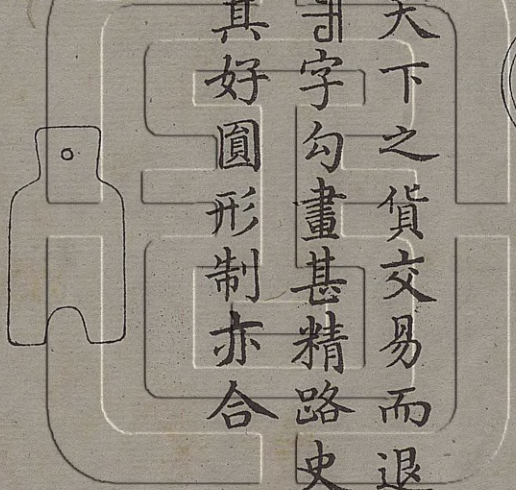 天下之貨交易而退
字勾畫甚精路史
其好圓形制亦合